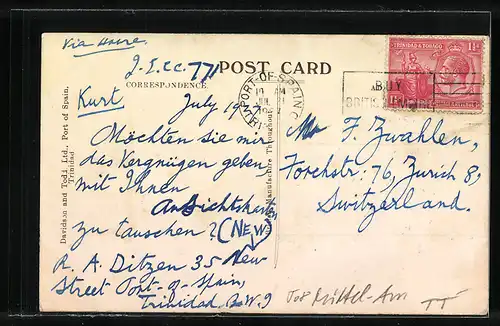 via
J.I.CC. 771
POST CARD
CORRESPONDENCE.
TRINIDAD & TOBAGO 1½d
PORT-OF-SPAIN
AM
BUY
BRITISH
Kurt
July 1927
Möchten Sie mir
das Vergnügen geben,
mit Ihnen
Ansichtskarten
zu tauschen? (NEW)
R. A. Ditzen 35 New
Street Port-of-Spain,
Trinidad B.W.I
Davidson and Todd Ltd., Port of Spain,
Trinidad
Manufacture Throughout
Mr F. Zwahlen,
Forchstr: 76, Zurich 8,
Switzerland.
TT